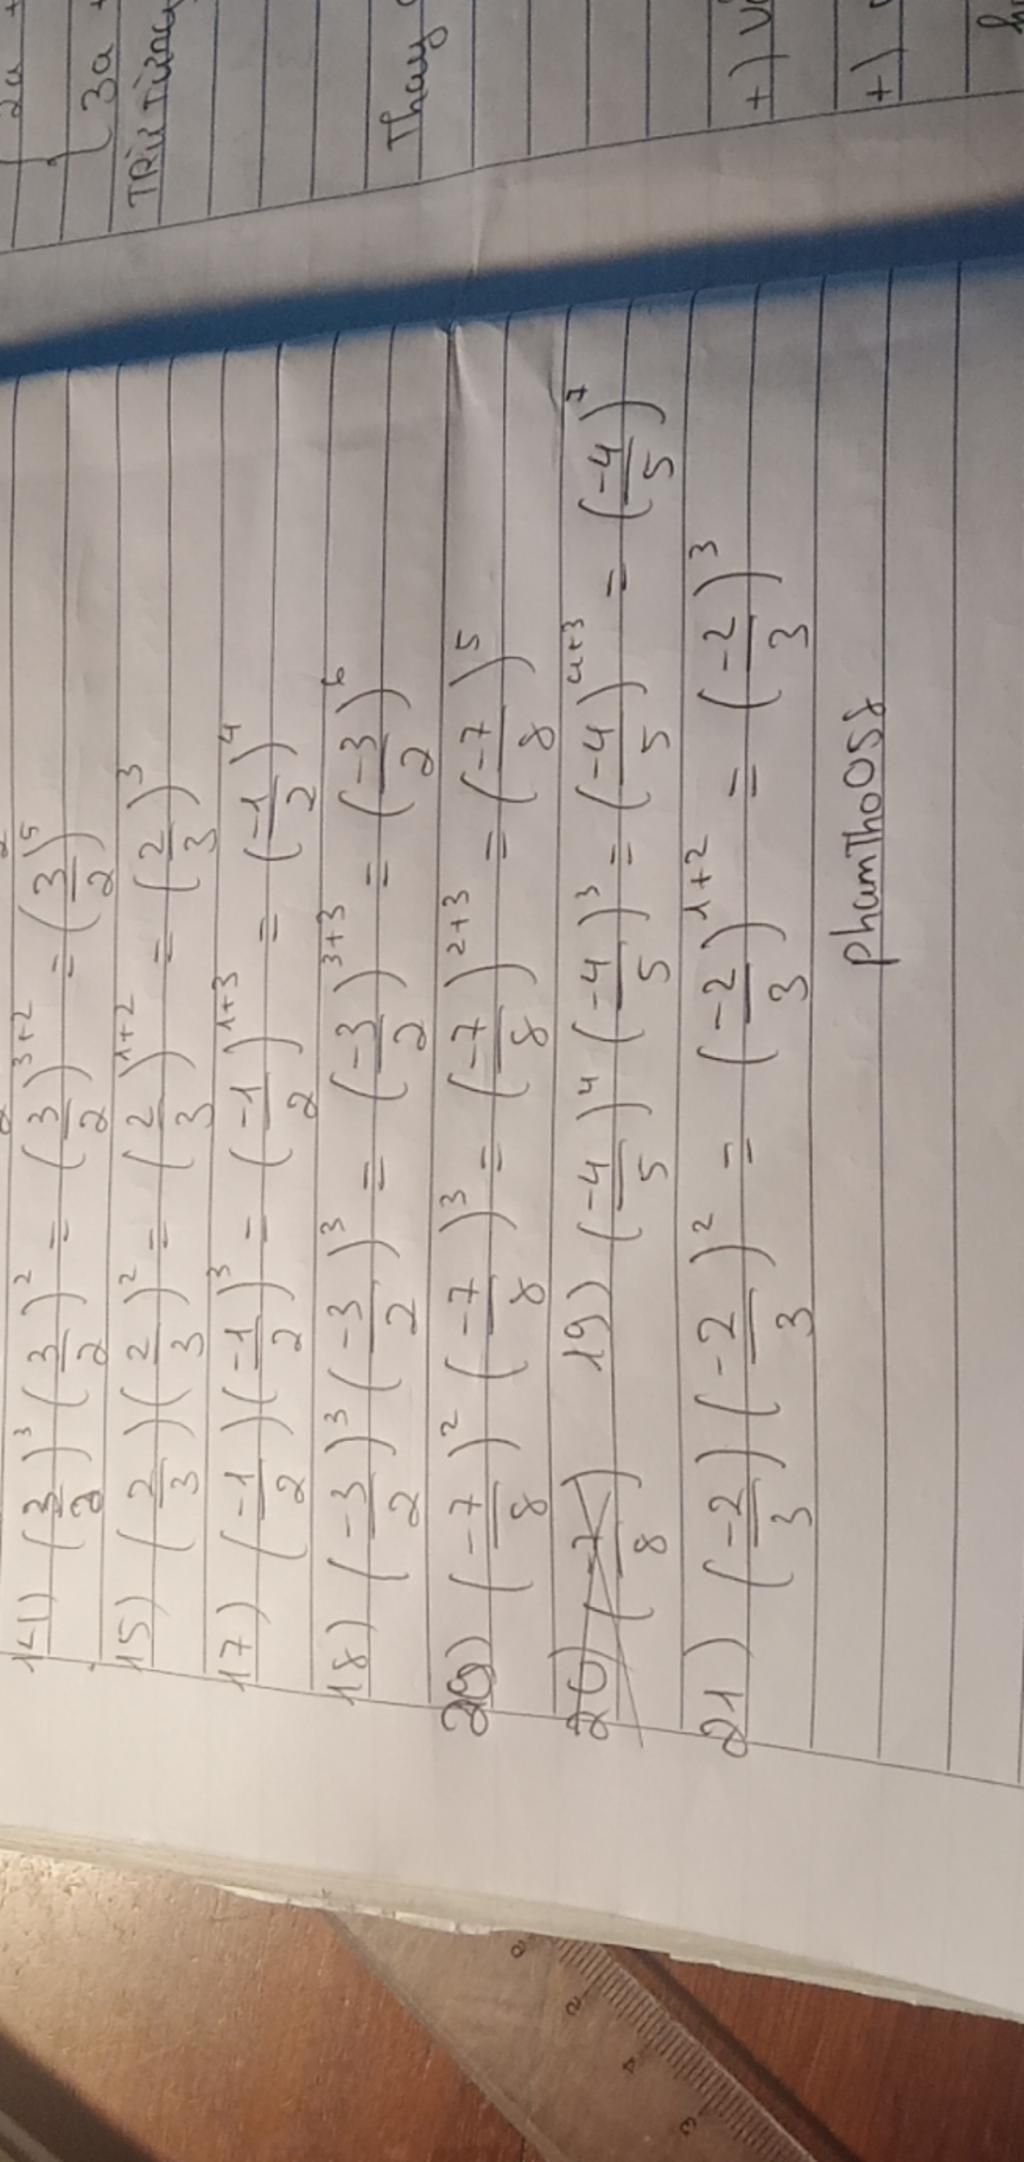 14) (3/2)³ (3/2)² = (3/2)³⁺² = (3/2)⁵
15) (2/3) (2/3)² = (2/3)¹⁺² = (2/3)³
17) (-1/2) (-1/2)³ = (-1/2)¹⁺³ = (-1/2)⁴
18) (-3/2)³ (-3/2)³ = (-3/2)³⁺³ = (-3/2)⁶
(-7/8)² (-7/8)³ = (-7/8)²⁺³ = (-7/8)⁵
20) (-7/8) 19) (-4/5)⁴ (-4/5)³ = (-4/5)⁴⁺³ = (-4/5)⁷
21) (-2/3) (-2/3)² = (-2/3)¹⁺² = (-2/3)³
phamTho058
2a +
{ 3a +
Trừ từng
Thay
+)
+)
3
4
5
6